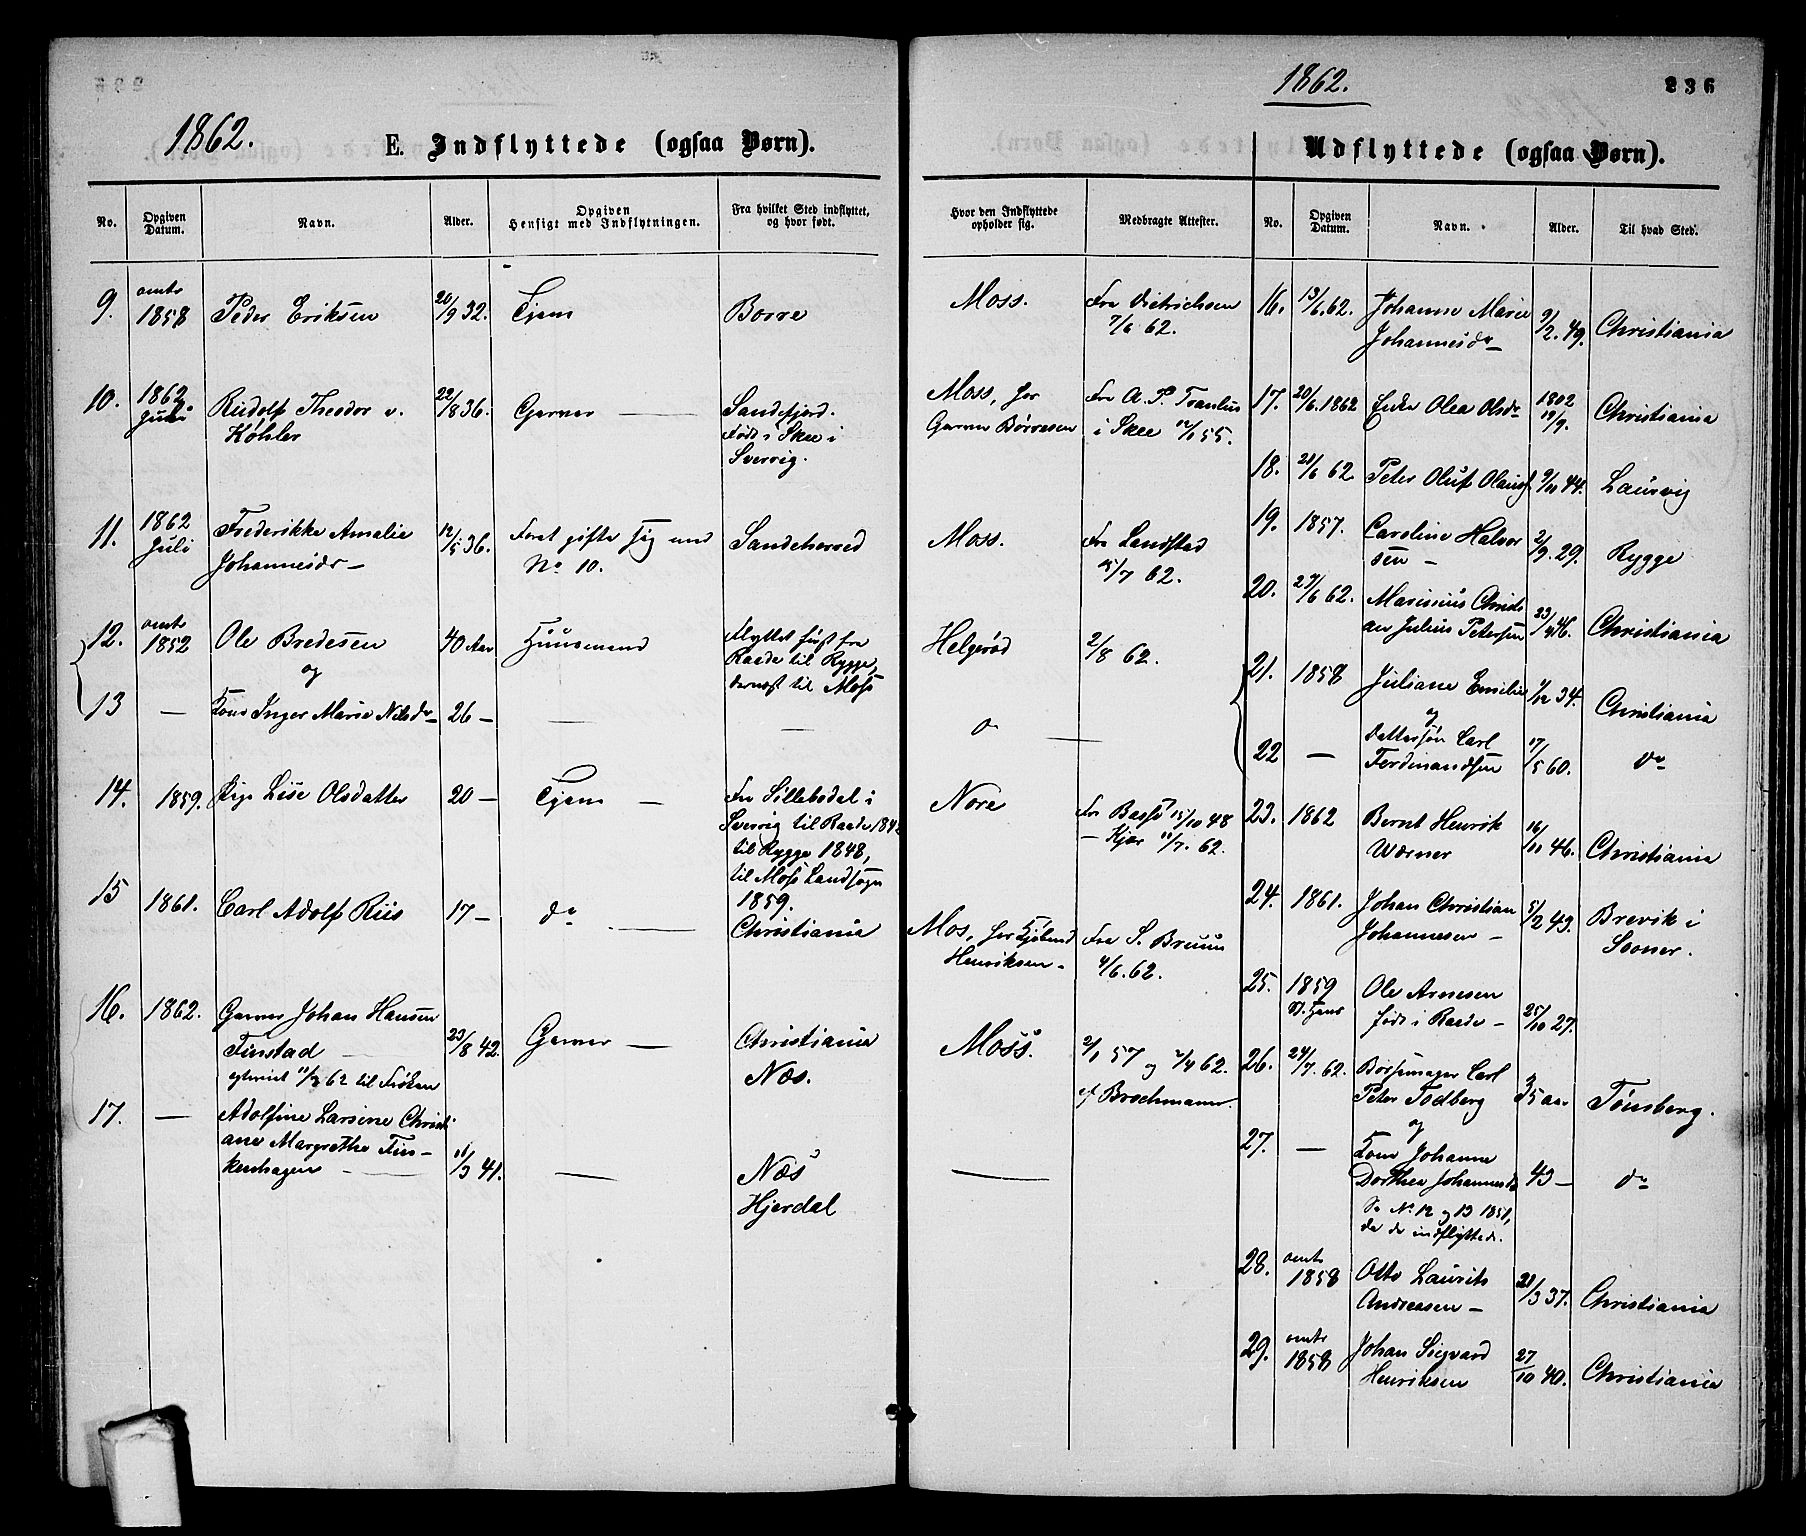 1862.
236
1862.
E. Indflyttede (ogsaa Børn).
Udflyttede (ogsaa Børn).
No.
Opgiven Datum.
Navn.
Alder.
Opgiven Hensigt med Indflytningen.
Fra hvilket Sted indflyttet, og hvor født.
Hvor den Indflyttede opholder sig.
Medbragte Attester.
No.
Opgiven Datum.
Navn.
Alder.
Til hvad Sted.
9. omtr 1858 Peder Eriksen 20/9 32. Tjene Borre Moss. Fra Dietrichsen 7/6 62.
10. 1862 Juli Rudolf Theodor v. Køhler 22/8 36. Garver — Sandefjord. Født i Skee i Sverrig. Moss, hos Garver Børresen Fra A. P. i Skee 12/1 55.
11. 1862 Juli Frederikke Amalie Johannesdr — 12/5 36. Foret gifte sig med No 10. Sandeherred Moss. Fra Landstad 15/7 62.
12. omtr 1852 Ole Bredesen 40 Aar Huusmand Flyttet først fra Raade til Rygge, dernæst til Moss Helgerød 2/8 62.
og
13 — Kone Inger Marie Nilsdr 26 — — — o —
14. 1859. Pige Lise Olsdatter 20 — Tjene — Fra Sillebodal i Sverrig til Raade 1842 til Rygge 1848, til Moss Landsogn 1859. Nore Fra Basse 15/10 48 — Kjær 11/7. 62.
15 1861. Carl Adolf Riis 17 — do — Christiania Mos, hos Kjøbmd Henriksen — Fra S. Bruun 4/6. 62.
16. 1862. Garver Johan Hansen Finstad 23/8 42. Garver — Christiania Næs. Moss. 2/1 57 og 2/4 62. af Brochmann.
62 til Frøken
17. — Adolfine Larsine Christiane Margrethe Finkenhagen — 11/3 41. — Næs Hjerdal —
16. 13/6. 62. Johanne Marie Johannesdr — 9/2. 49. Christiania
17. 20/6. 1862 Enke Olea Olsdr 1802 19/9. Christiania
18. 21/6 62. Peter Oluf Olausf 9/10 44. Laurvig
19. 1857. Caroline Halvorsen — 2/9. 29. Rygge
20. 27/6 62. Marinius Christian Julius Petersen 23/4 46. Christiania
21. 1858 Juliane Emilie 1/12 34. Christiania
og
22 — Dattersøn Carl Ferdinandsen 17/5 60. do
23. 1862 Bernt Henrik Wærner 16/10 46. Christiania
24. 1861. Johan Christian Johannesen — 5/2 43. Brevik i Sooner.
25. 1859 St. Hans Ole Arnesen født i Raade — 25/10 27.
26. 24/7. 62. Børsemager Carl Peter Todberg 35 aar Tønsberg.
og
27. — Kone Johanne Dorthea Johannesdr 43 — do
Se No 12 og 13 1851, da de indflyttede.
28. omtr 1858 Otto Laurits Andreasen — 21/3 37. Christiania
29. omtr 1858 Johan Sigvard Henriksen 27/10 40. Christiania